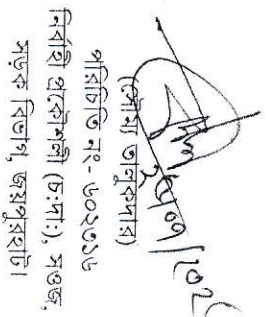 (সৌম্য তালুকদার)
পরিচিতি নং- ৬০২৩১৬
নির্বাহী প্রকৌশলী (চঃদাঃ), সওজ,
সড়ক বিভাগ, জয়পুরহাট।